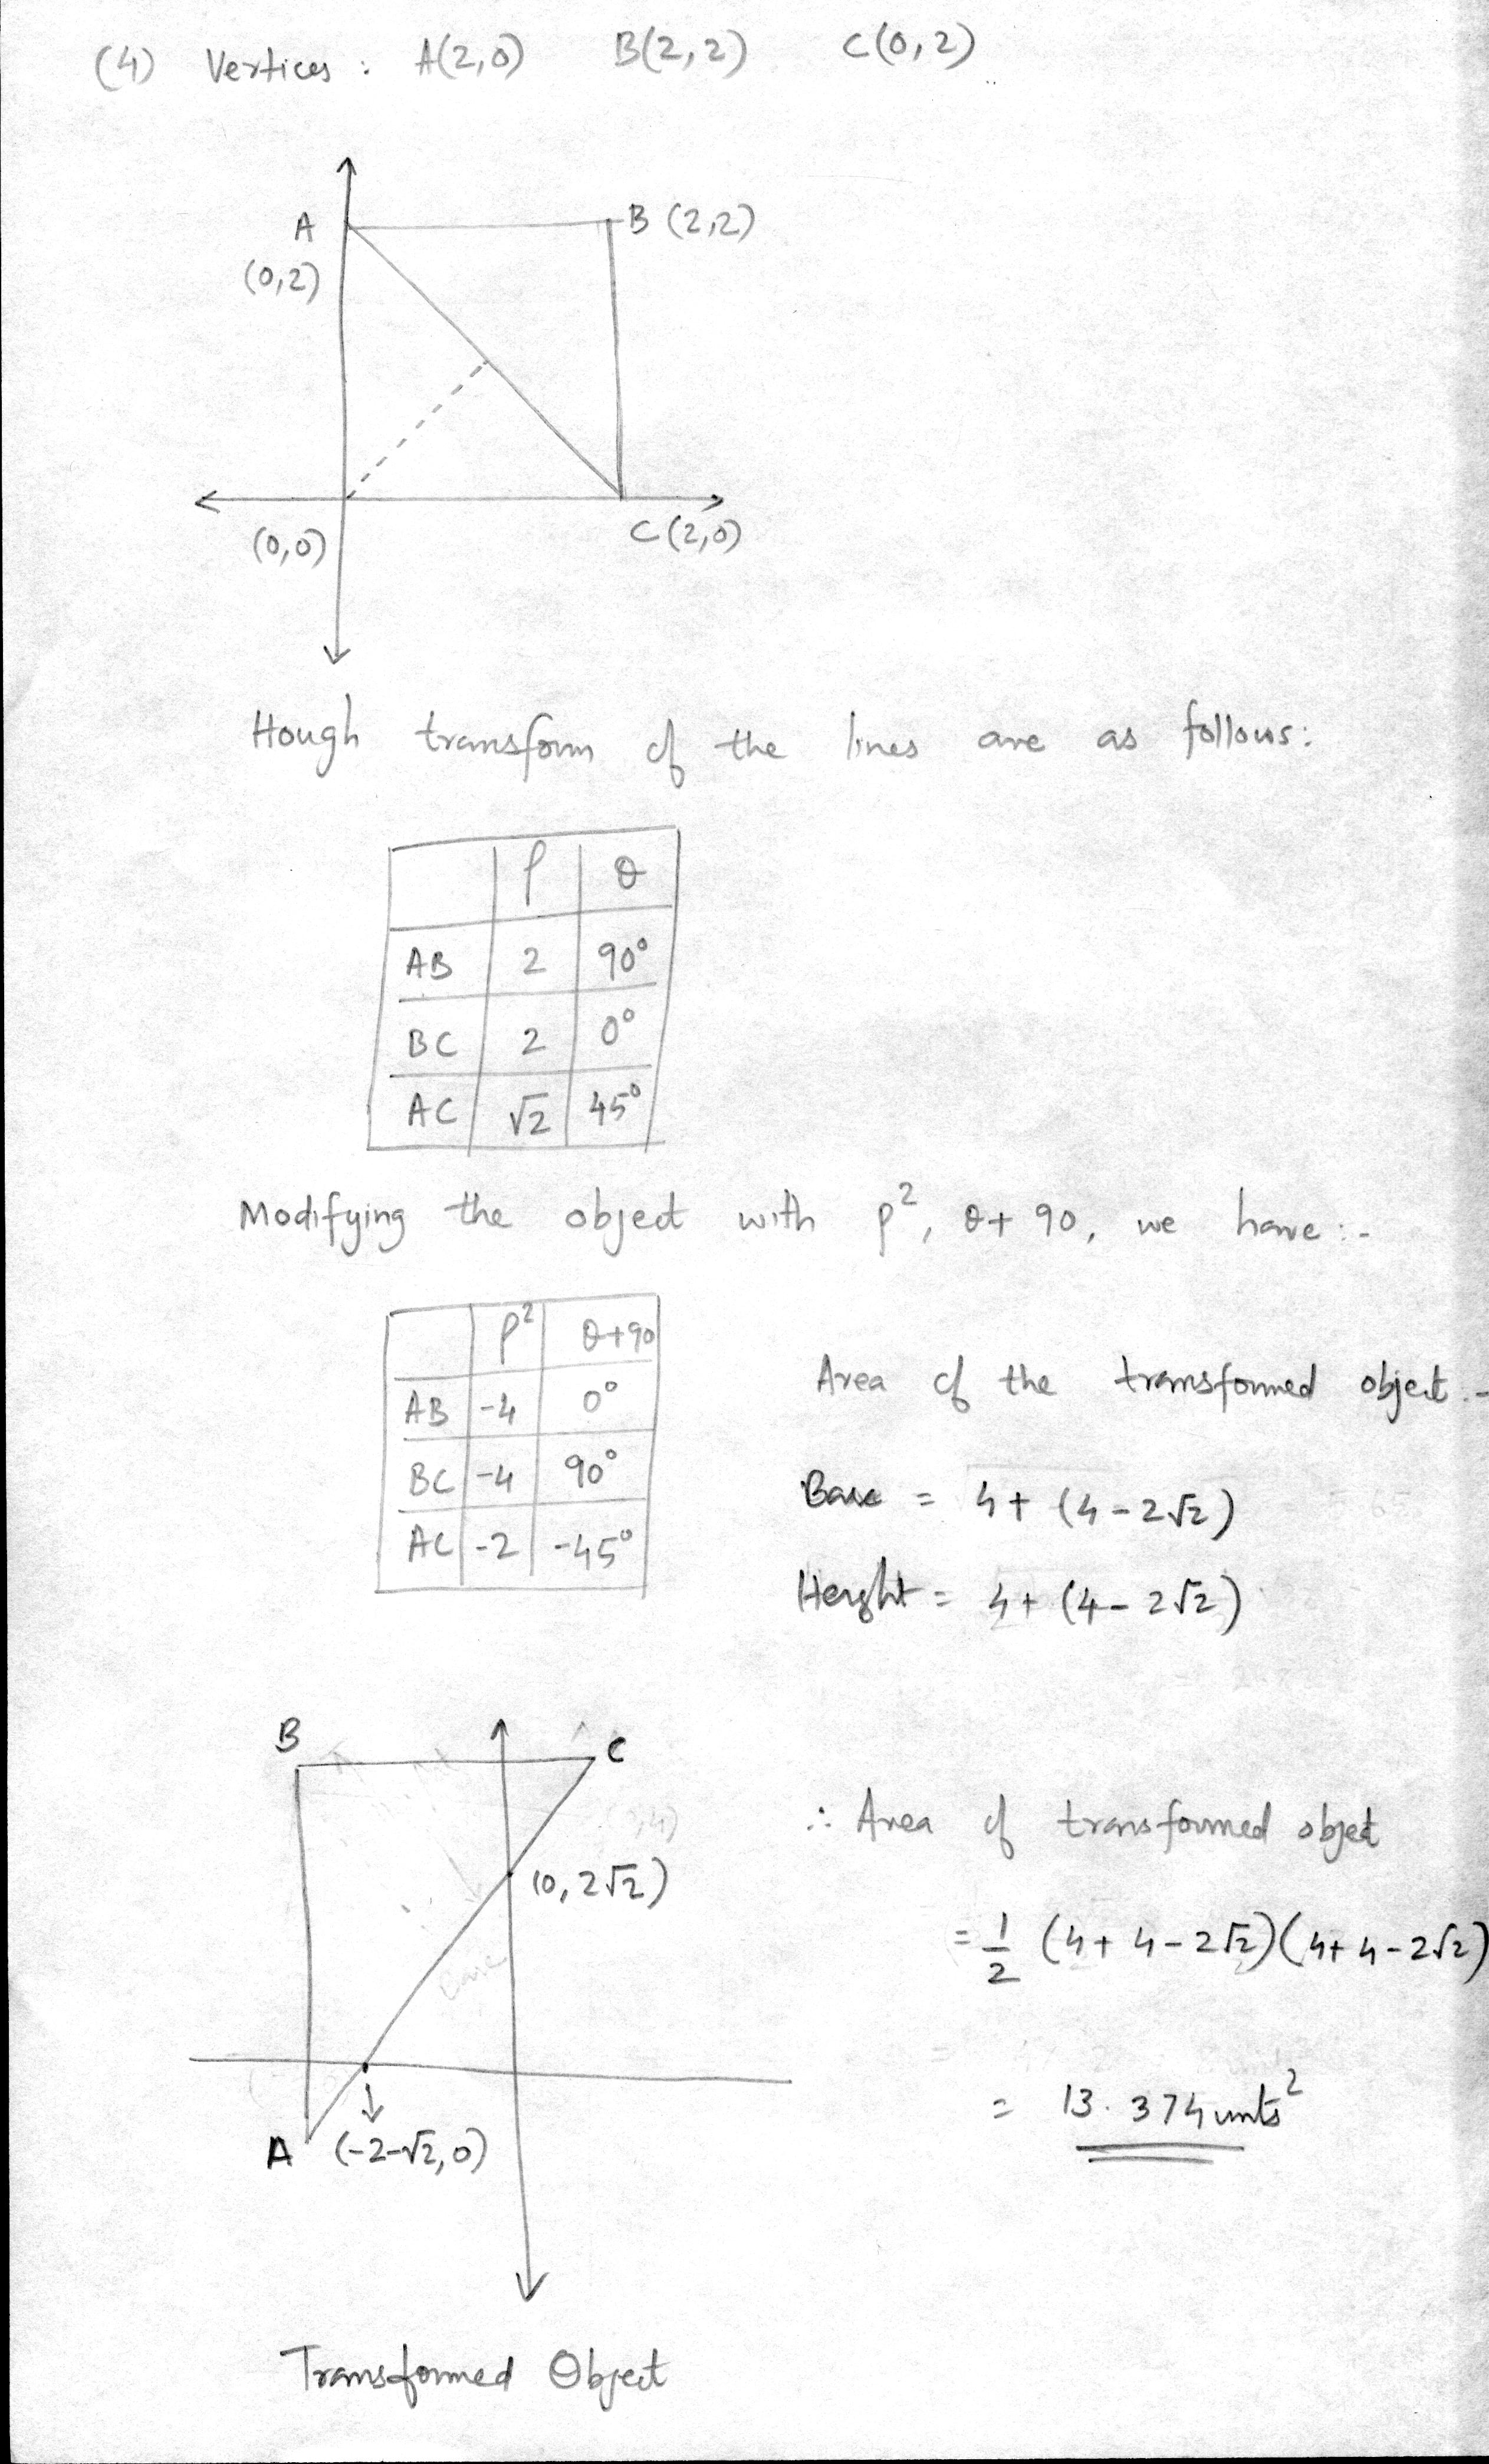 (4) Vertices : A(2,0) B(2,2) C(0,2)
A
B (2,2)
(0,2)
(0,0)
C(2,0)
Hough transform of the lines are as follows:
ρ θ
AB 2 90°
BC 2 0°
AC √2 45°
Modifying the object with ρ², θ+90, we have :-
ρ² θ+90
AB -4 0°
BC -4 90°
AC -2 -45°
Area of the transformed object :-
Base = 4+ (4-2√2)
Height = 4+ (4-2√2)
B
C
(0,2√2)
A (-2-√2,0)
∴ Area of transformed object
= 1/2 (4+4-2√2)(4+4-2√2)
= 13.374 units²
Transformed Object